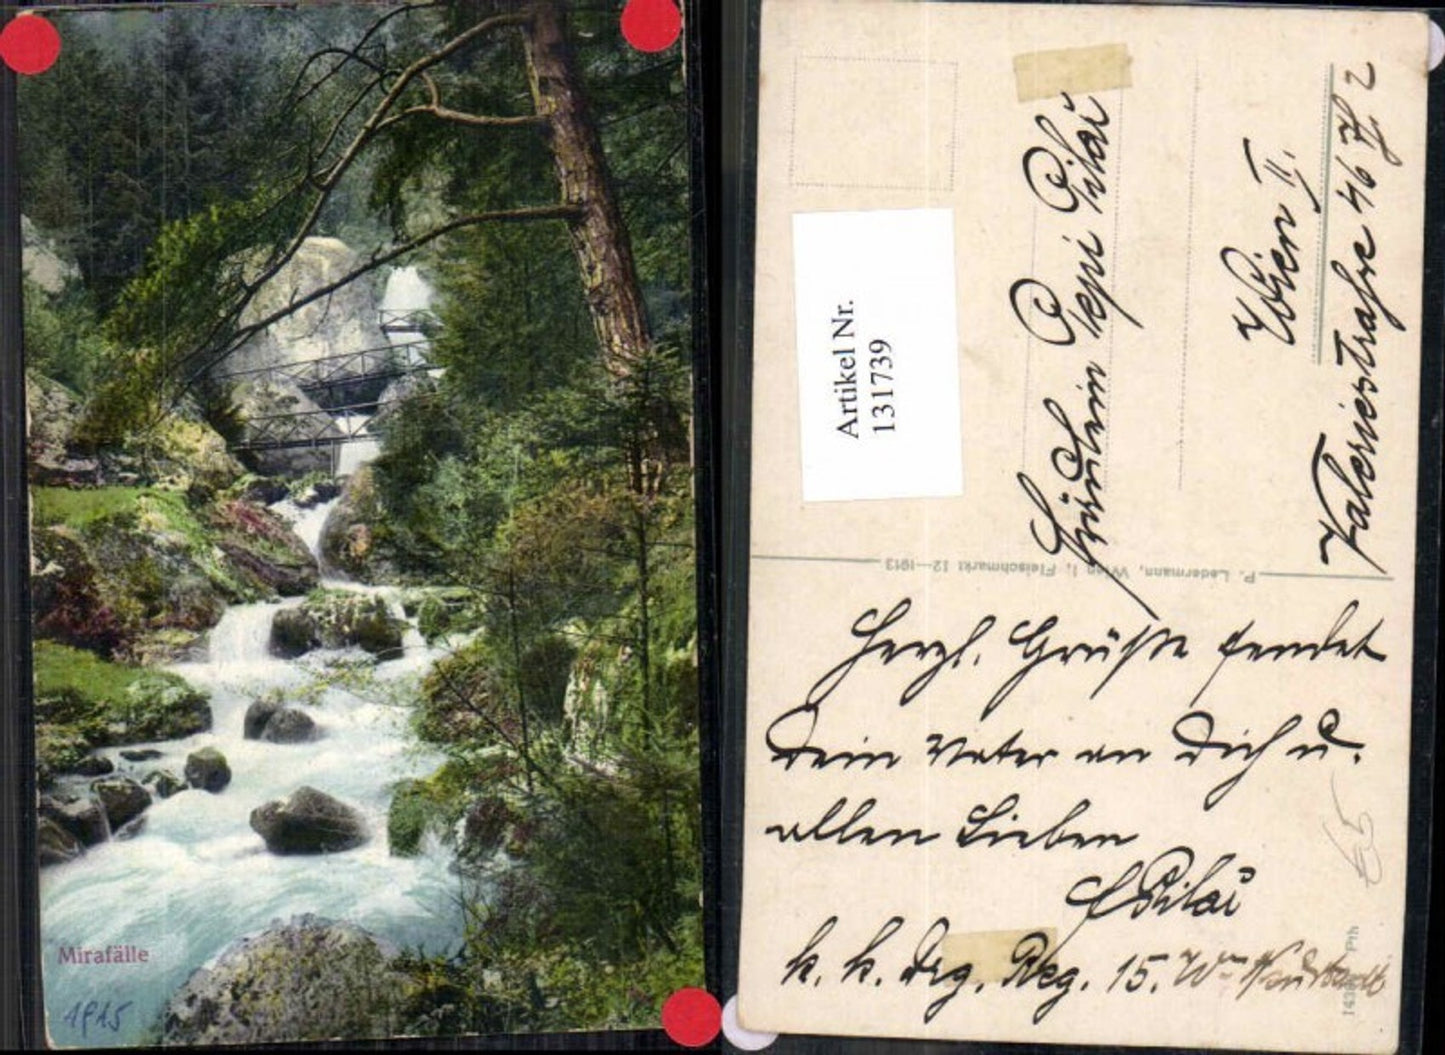 Mirafälle
1915
Artikel Nr.
131739
Fräulein Pepi Pilař
Wien II.
Valeriestraße 46 2
P. Ledermann, Wien I, Fleischmarkt 12—1913
Herzl. Grüße sendet
Dein Vater an Dich u.
allen Lieben
Pilař
k. k. Drg. Reg. 15. Wr. Neustadt
65